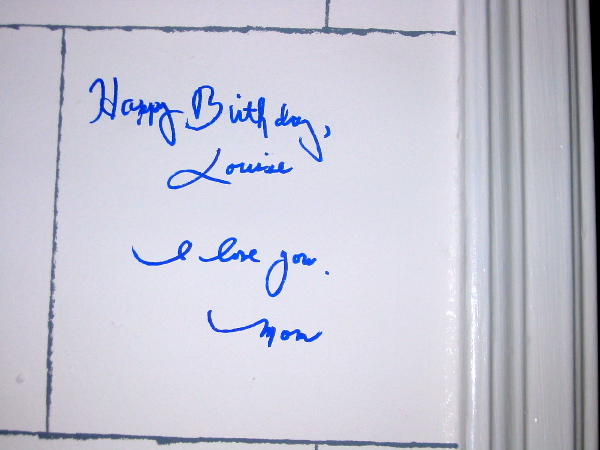 Happy Birthday,
Louise
I love you.
Mom